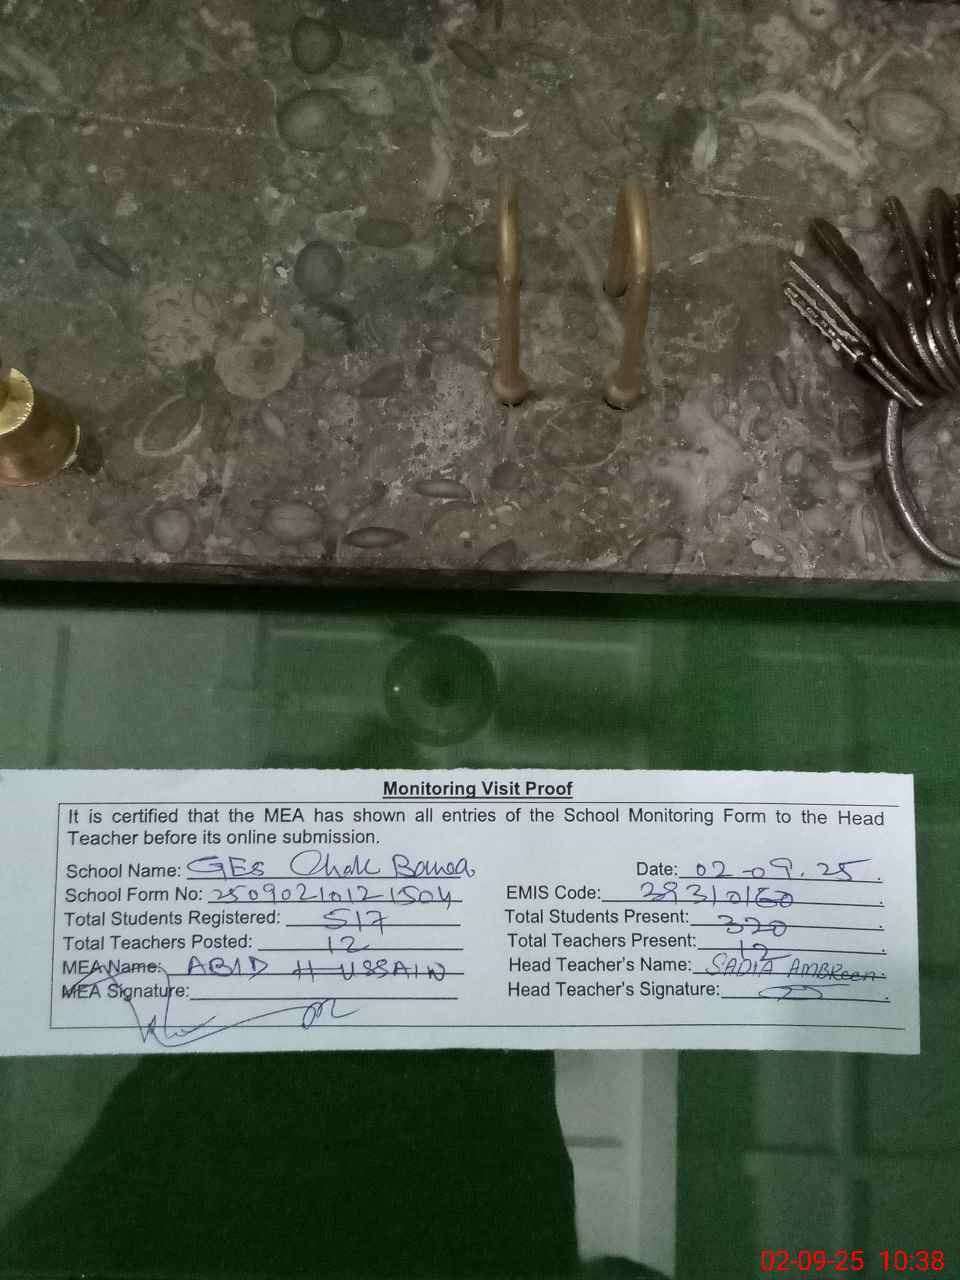 Monitoring Visit Proof
It is certified that the MEA has shown all entries of the School Monitoring Form to the Head
Teacher before its online submission.
School Name: GES Chak Bawa Date: 02-09.25
School Form No: 25090210121504 EMIS Code: 39310160
Total Students Registered: 517 Total Students Present: 320
Total Teachers Posted: 12 Total Teachers Present: 12
MEA Name: ABID HUSSAIN Head Teacher's Name: SADIA AMBReen
MEA Signature: Head Teacher's Signature:
02-09-25 10:38